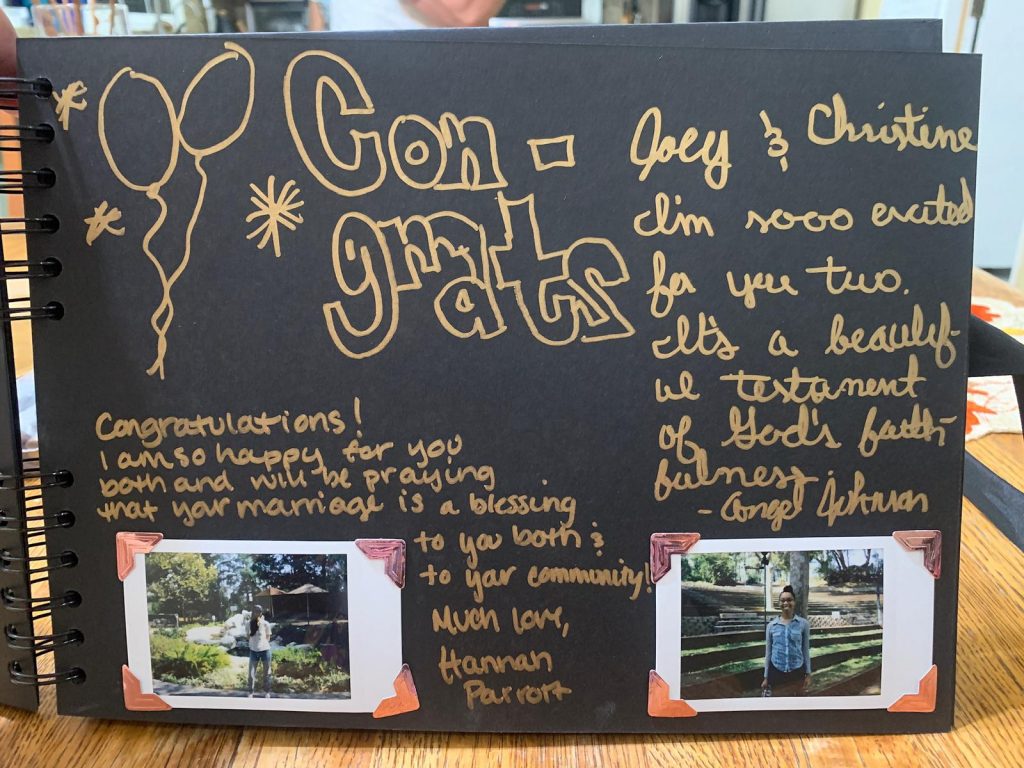 Con-
grats
Joey & Christine
I'm sooo excited
for you two.
It's a beautif-
ul testament
of God's faith-
fulness.
- Angel Johnson
Congratulations!
I am so happy for you
both and will be praying
that your marriage is a blessing
to you both &
to your community!
Much love,
Hannah
Parrott